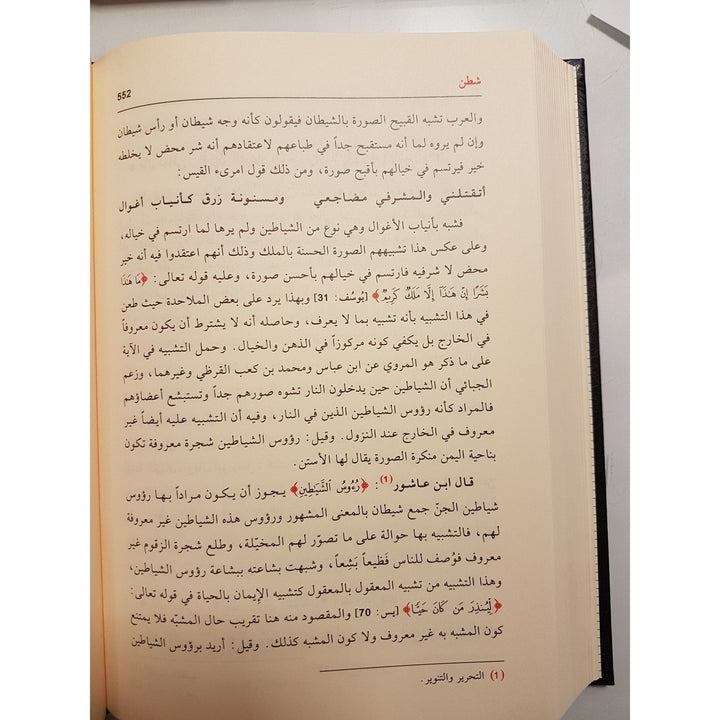 552
شطن
والعرب تشبه القبيح الصورة بالشيطان فيقولون كأنه وجه شيطان أو رأس شيطان
وإن لم يروه لما أنه مستقبح جداً في طباعهم لاعتقادهم أنه شر محض لا يخلطه
خير فيرتسم في خيالهم بأقبح صورة، ومن ذلك قول امرىء القيس:
أتقتلني والمشرفي مضاجعي ومسنونة زرق كأنياب أغوال
فشبه بأنياب الأغوال وهي نوع من الشياطين ولم يرها لما ارتسم في خياله،
وعلى عكس هذا تشبيههم الصورة الحسنة بالملك وذلك أنهم اعتقدوا فيه أنه خير
محض لا شرفيه فارتسم في خيالهم بأحسن صورة، وعليه قوله تعالى: ﴿مَا هَٰذَا
بَشَرًا إِنْ هَٰذَا إِلَّا مَلَكٌ كَرِيمٌ﴾ [يُوسُف: 31] وبهذا يرد على بعض الملاحدة حيث طعن
في هذا التشبيه بأنه تشبيه بما لا يعرف، وحاصله أنه لا يشترط أن يكون معروفاً
في الخارج بل يكفي كونه مركوزاً في الذهن والخيال. وحمل التشبيه في الآية
على ما ذكر هو المروي عن ابن عباس ومحمد بن كعب القرظي وغيرهما، وزعم
الجبائي أن الشياطين حين يدخلون النار تشوه صورهم جداً وتستبشع أعضاؤهم
فالمراد كأنه رؤوس الشياطين الذين في النار، وفيه أن التشبيه عليه أيضاً غير
معروف في الخارج عند النزول. وقيل: رؤوس الشياطين شجرة معروفة تكون
بناحية اليمن منكرة الصورة يقال لها الأستن.
قال ابن عاشور(1): ﴿رُءُوسُ الشَّيَاطِينِ﴾ يجوز أن يكون مراداً بها رؤوس
شياطين الجنّ جمع شيطان بالمعنى المشهور ورؤوس هذه الشياطين غير معروفة
لهم، فالتشبيه بها حوالة على ما تصوّر لهم المخيّلة، وطلع شجرة الزقوم غير
معروف فوُصف للناس فَظيعاً بَشِعاً، وشبهت بشاعته ببشاعة رؤوس الشياطين،
وهذا التشبيه من تشبيه المعقول بالمعقول كتشبيه الإيمان بالحياة في قوله تعالى:
﴿لِيُنذِرَ مَن كَانَ حَيًّا﴾ [يس: 70] والمقصود منه هنا تقريب حال المشبّه فلا يمتنع
كون المشبه به غير معروف ولا كون المشبه كذلك. وقيل: أريد برؤوس الشياطين
(1) التحرير والتنوير.